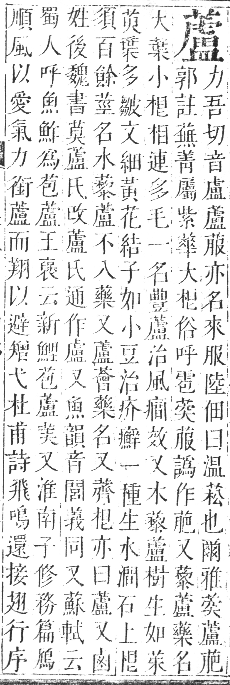 蘆力吾切音盧蘆菔亦名來服陸佃曰温菘也爾雅葖蘆萉
郭註蕪菁屬紫華大根俗呼雹葖菔譌作萉又藜蘆藥名
大葉小根相連多毛一名豐蘆治風癎效又木藜蘆樹生如茱
萸葉多皴文細黃花結子如小豆治疥癬一種生水澗石上根
須百餘莖名水藜蘆不入藥又蘆薈藥名又薺根亦曰蘆又鹵
姓後魏書莫蘆氏改蘆氏通作盧又魚韻音閭義同又蘇軾云
蜀人呼魚鮓爲苞蘆王褒云新鯉苞蘆美又淮南子修務篇鴈
順風以愛氣力銜蘆而翔以避矰弋杜甫詩飛鳴還接翅行序